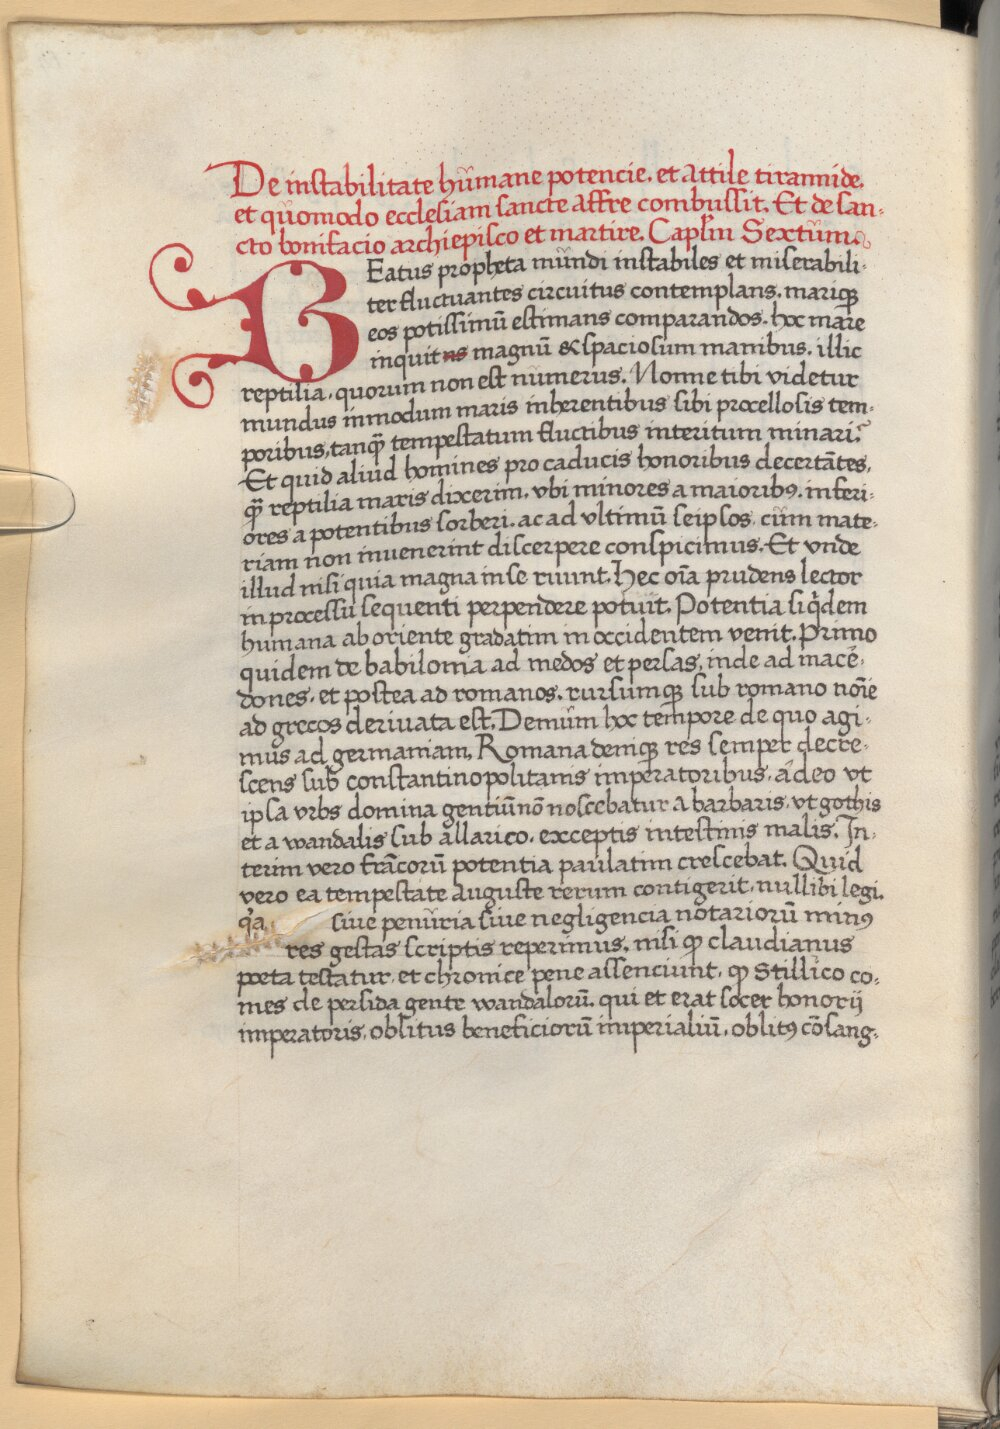 De instabilitate hůmane potencie. et attile tirannide.
et qůomodo ecclesiam sancte affre combussit. Et de san-
cto bonifacio archiepisco et martire. Caplm̄ Sextům.
BEatus propheta můndi instabiles et miserabili-
ter fluctuantes circuitus contemplans. mariqꝫ
eos potissimū estimans comparandos. hoc mare
inquit magnū & spaciosum manibus. illic
reptilia. quorum non est nůmerus. Nonne tibi videtur
mundus in modum maris inherentibus sibi procellosis tem-
poribus, tanqꝫ̄ tempestatum fluctibus interitum minari?
Et quid aliud homines pro caducis honoribus decertātes,
qꝫ̄ reptilia maris dixerim. vbi minores a maioribꝰ. inferi-
ores a potentibus sorberi. ac ad vltimū seipsos, cům mate-
riam non inuenerint discerpere conspicimus. Et vnde
illud nisi quia magna in se ruunt. Hec oīa prudens lector
in processu sequenti perpendere potuit. Potentia siq̇dem
humana ab oriente gradatim in occidentem venit. Primo
quidem de babilonia ad medos et persas, inde ad mace-
dones. et postea ad romanos. rursumqꝫ sub romano noīe
ad grecos deriuata est. Demům hoc tempore de quo agi-
mus ad germaniam. Romana deniqꝫ res semper decre-
scens sub constantinopolitanis imperatoribus. adeo vt
ipsa vrbs domina gentiū nō noscebatur a barbaris. vt gothis
et a wandalis sub allarico. exceptis intestinis malis. In-
terim vero frācorū potentia paulatim crescebat. Quid
vero ea tempestate auguste rerum contigerit. nullibi legi.
qꝛa siue penůria siue negligencia notariorū minꝰ
res gestas scriptis reperimus. nisi qꝫ claudianus
poeta testatur. et chronice pene assenciunt. qꝫ Stillico co-
mes de persida gente wandalorū. qui et erat socer honorij
imperatoris. oblitus beneficiorū imperialiū. oblitꝰ cōsang-